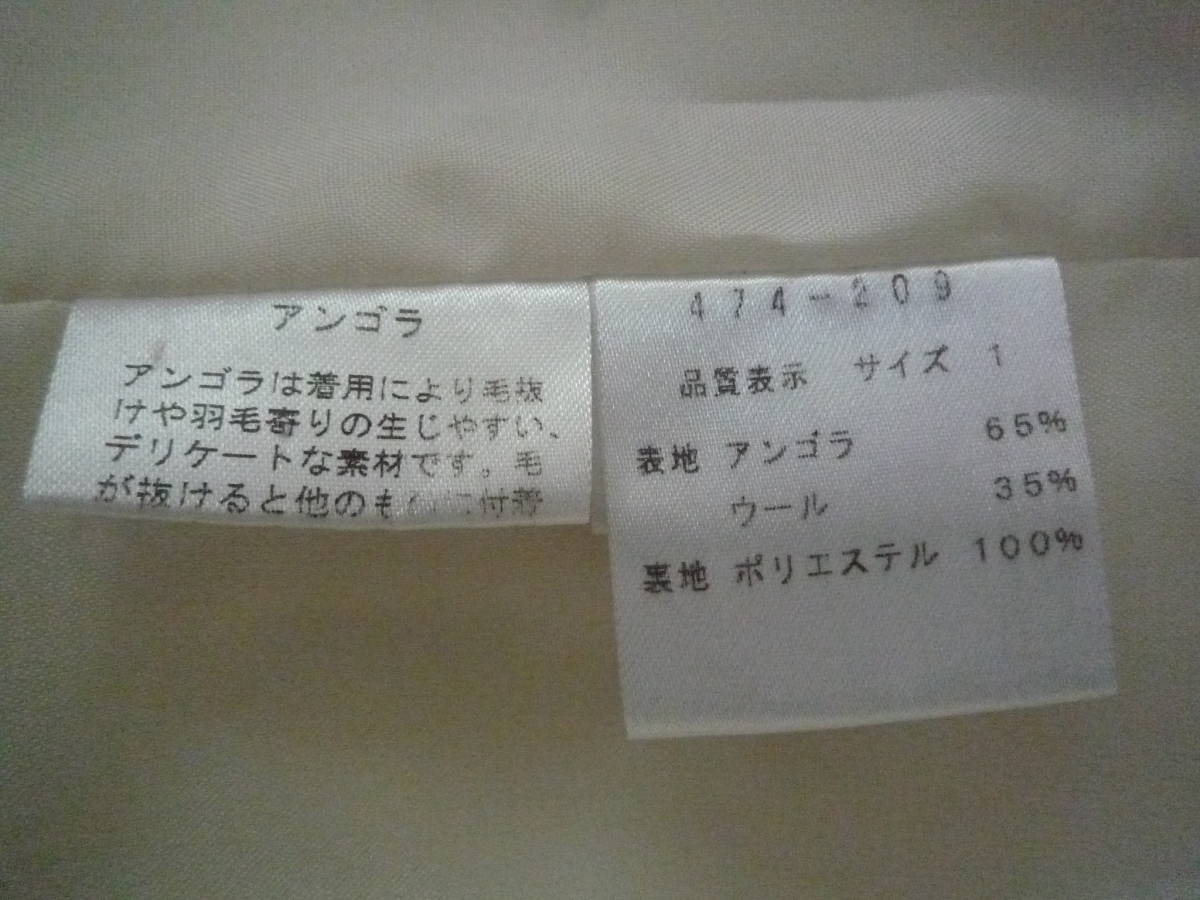 アンゴラ
アンゴラは着用により毛抜
けや羽毛寄りの生じやすい、
デリケートな素材です。毛
が抜けると他のものに付着
474-209
品質表示 サイズ 1
表地 アンゴラ 65%
ウール 35%
裏地 ポリエステル 100%